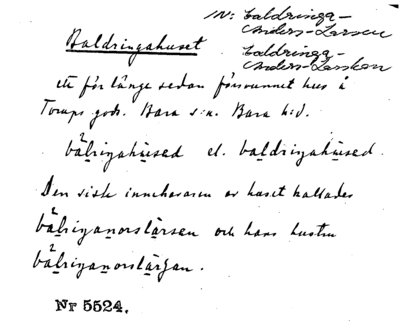 se: Baldringa-
Anders-Larsen
Baldringa-
Anders-Larskan
Baldringahuset
ett för länge sedan försvunnet hus å
Torups gods. Bara s:n. Bara h:d.
bälrigahùsed el. baldrigahùsed.
Den siste innehavaren av huset kallades
bälriganorslärsen och hans hustru
bälriganorslärskan.
Nr 5524.